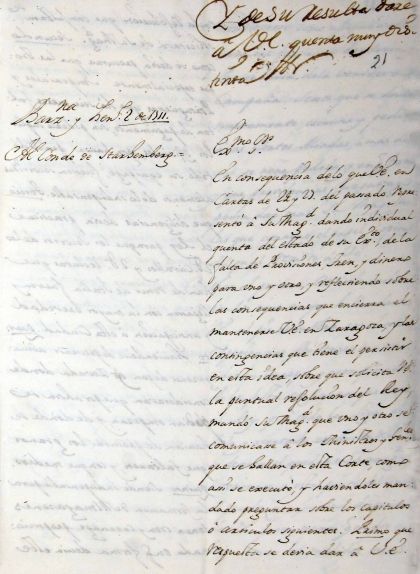 Y de su resulta dare
â V.E. quenta muy dis
tinta
21
Barz.na y Hen.o 2 de 1711.
Al Conde de Starhemberg.=
Ex.mo S.r
En consequencia de lo que V.E. en
Cartas de 12 y 17 del passado
sentó â su Mag.d dando individual
quenta del estado de su Ex.to de la
falta de Provisiones, tren, y dinero
para uno y otro, y reflectiendo sobre
las consequencias que encierra el
mantenerse V.E. en Zaragoza, y las
contingencias que tiene el persistir
en esta idea, sobre que solicita V.E.
la puntual resolucion del Rey
mandó su Mag.d que uno y otro se
comunicase â los Ministros y Gen.es
que se hallan en esta Corte como
assi se executó, y haviendoles man
dado preguntar sobre los capitulos
ô articulos siguientes. Primo que
respuesta se devia dar â V.E.